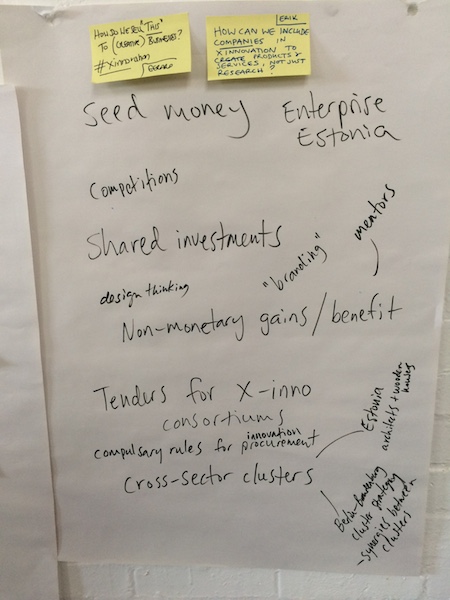 HOW DO WE SELL "THIS"
TO (CREATIVE) BUSINESSES?
#Xinnovation
ERIK
HOW CAN WE INCLUDE
COMPANIES IN
XINNOVATION TO
CREATE PRODUCTS &
SERVICES, NOT JUST
RESEARCH?
Seed money
Enterprise
Estonia
Competitions
Shared investments
mentors
design thinking
"branding"
Non-monetary gains/benefit
Tenders for X-inno
consortiums
compulsary rules for innovation procurement
Cross-sector clusters
Estonia
architects + wooden
houses
Berlin-Brandenburg
cluster strategy
-synergies between
clusters